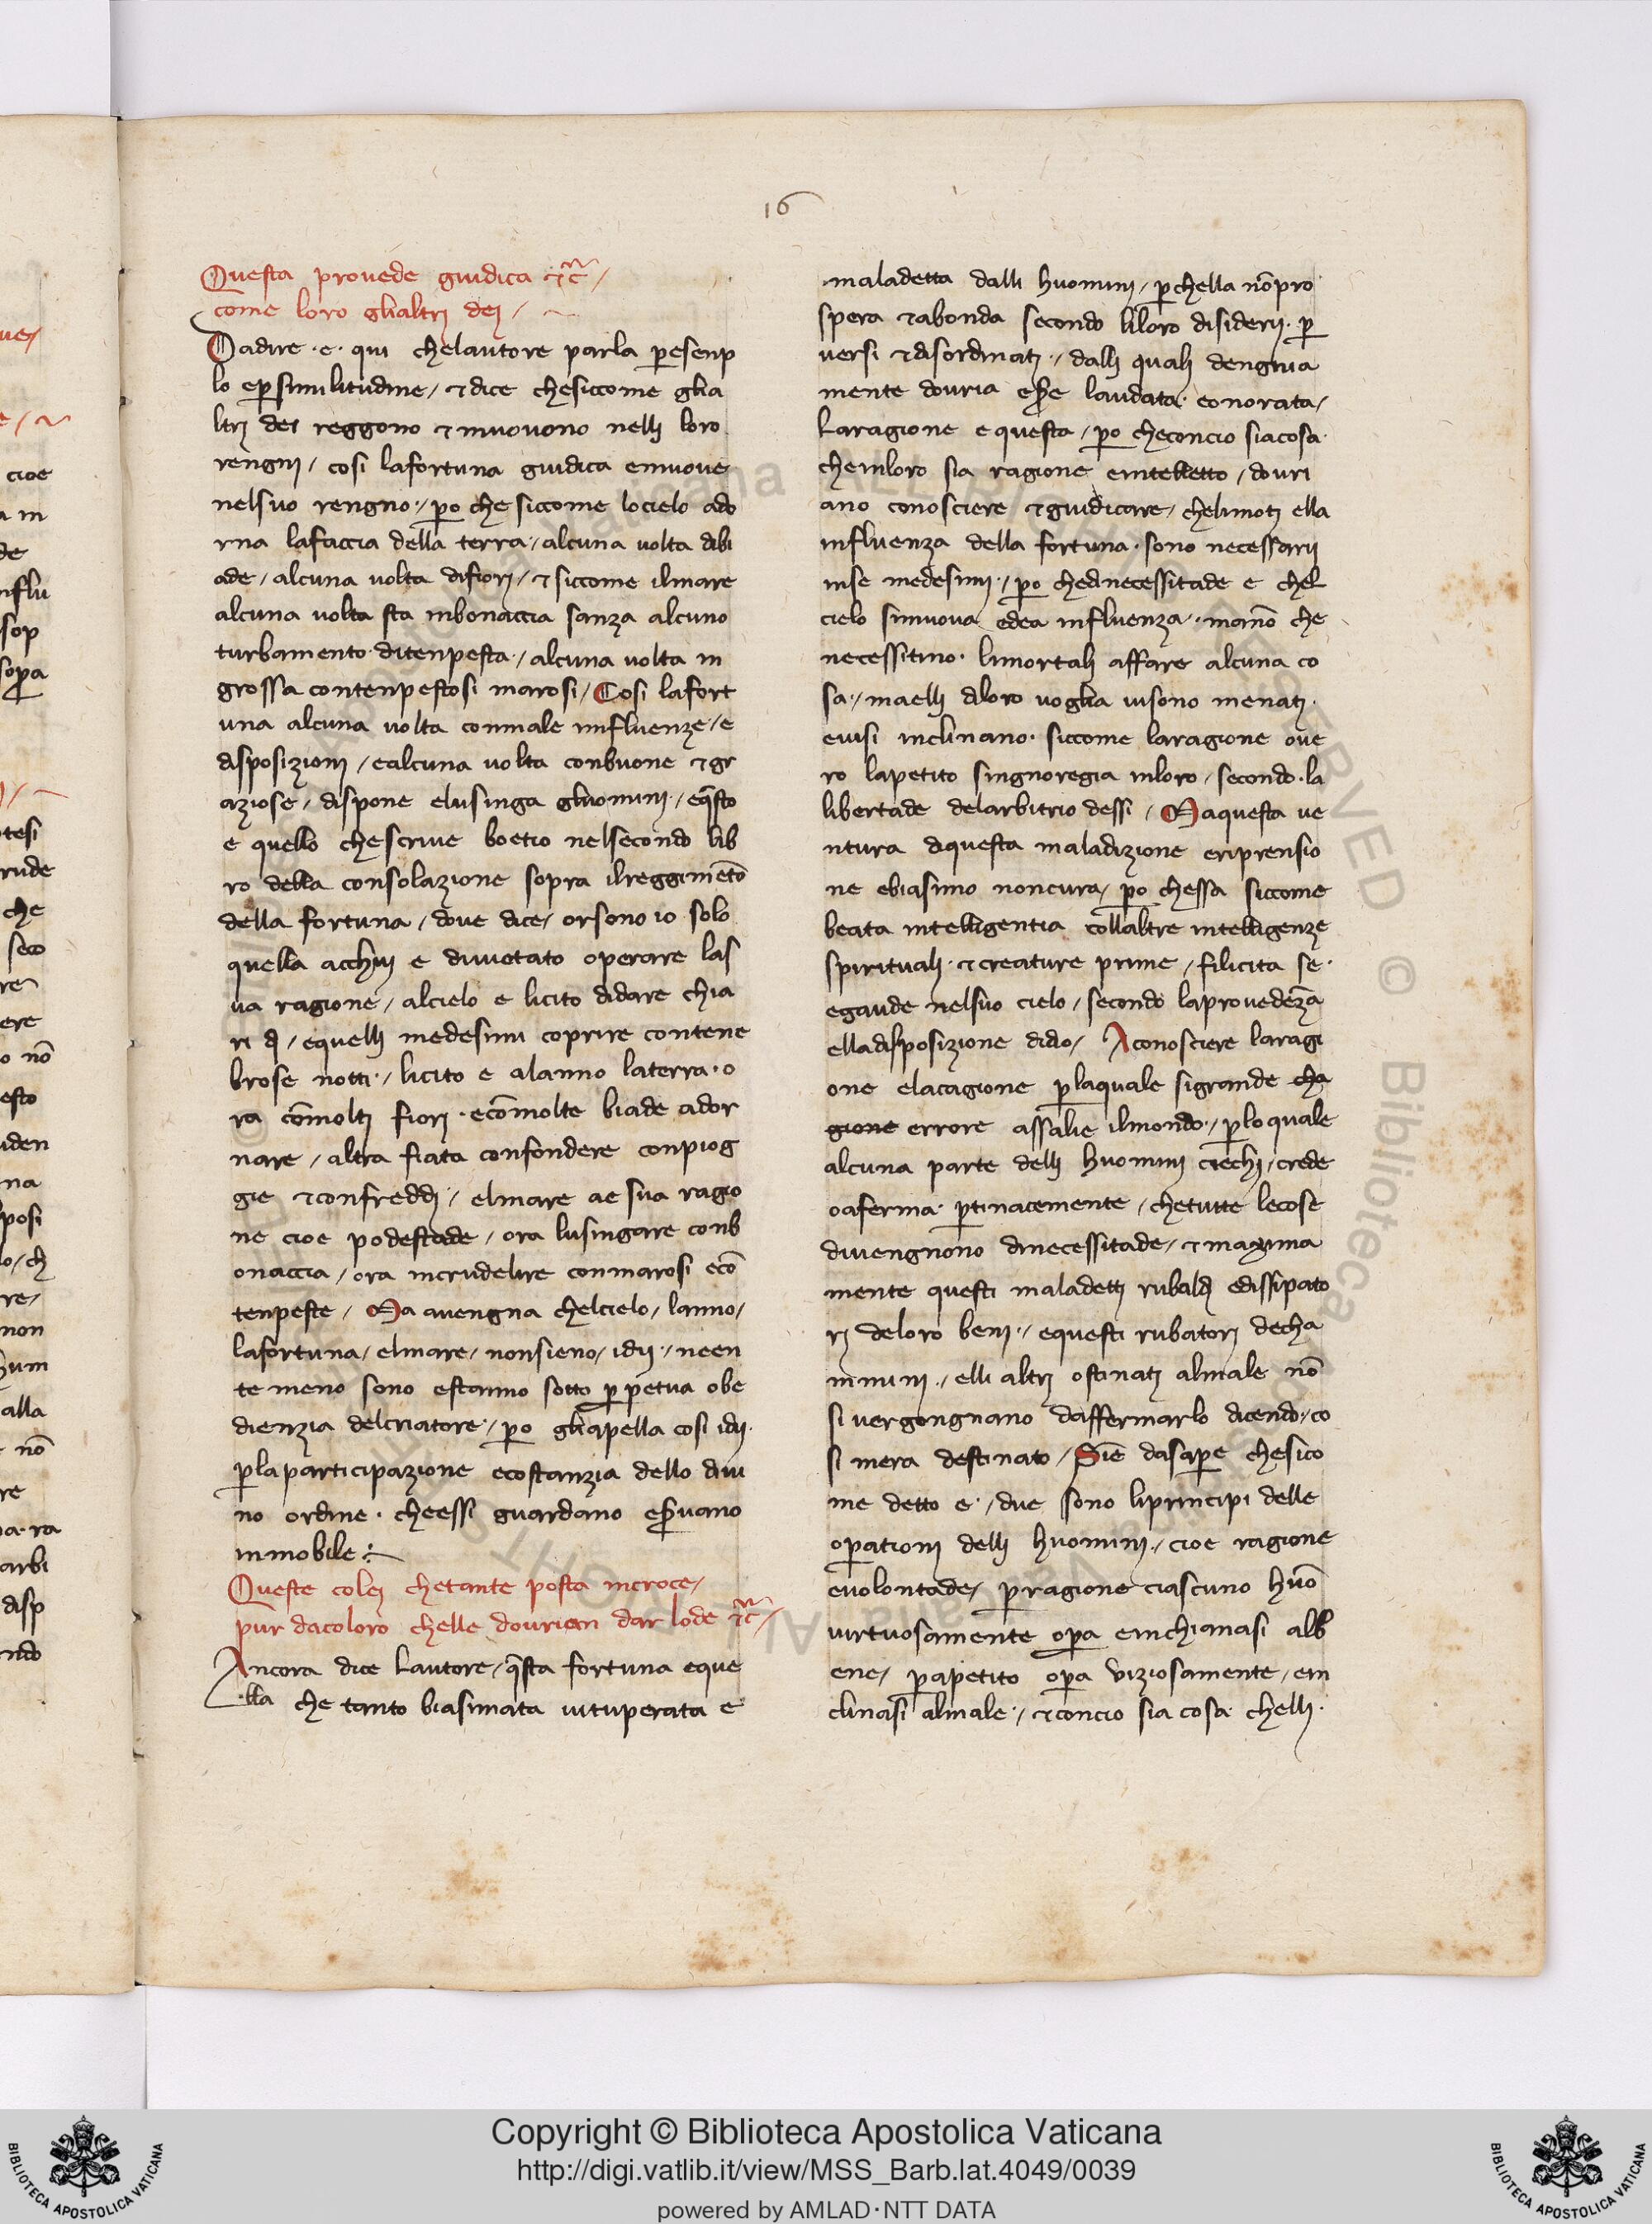 16
Questa prouede giudica ⁊c̃ /
come loro glialtri dei / ~
Dadire · e · qui chelautore parla ꝑesenp
lo eꝑsimilitudine / ⁊dice chesiccome glia
ltri dei reggono ⁊muouono nelli loro
rengni / cosi lafortuna giudica emuoue
nelsuo rengno · / ꝑo che siccome locielo ado
rna lafaccia della terra / alcuna volta dibi
ade / alcuna volta difiori / ⁊siccome ilmare
alcuna volta sta inbonaccia sanza alcuno
turbamento ditenpesta · / alcuna volta in
grossa contenpestosi marosi / Cosi lafort
una alcuna volta conmale influenze · / e
disposizioni / ealcuna volta conbuone ⁊gr
aziose / dispone elusinga gliuomini · / eq̃sto
e quello chescriue boetio nelsecondo lib
ro della consolazione sopra ilreggimẽto
della fortuna / doue dice / orsono io solo
quella acchui e diuietato operare las
ua ragione / alcielo e licito didare chia
ri dj / equelli medesimi coprire contene
brose notti · / licito e alanno laterra · o
ra cõmolti fiori · ecõmolte biade ador
nare / altra fiata confondere conpiog
gie ⁊confreddi / elmare ae sua ragio
ne cioe podestade / ora lusingare conb
onaccia / ora incrudelire conmarosi ecõ
tenpeste / Ma auengna chelcielo / lanno /
lafortuna / elmare / nonsieno / idij · / neen
te meno sono estanno sotto ꝑpetua obe
dienzia delcriatore · / ꝑo gliapella cosi idij ·
ꝑlaparticipazione ecostanzia dello diui
no ordine · cheessi guardano eꝑuano
inmobile :
Queste colei chetante posta incroce /
pur dacoloro chelle dourien dar lode ⁊c̃ /
Ancora dice Lautore / q̃sta fortuna eque
lla che tanto biasimata uituperata e
maladetta dalli huomini / ꝑchella nõpro
spera ⁊abonda secondo liloro disiderij · ꝑ
versi ⁊disordinati · / dalli quali dengnia
mente douria eẞe laudata · eonorata /
Laragione e questa / ꝑo checoncio siacosa ·
cheinloro sia ragione eintelletto / douri
ano conosciere ⁊giudicare / chelimoti ella
influenza della fortuna · sono necessarij
inse medesimi · / ꝑo chednecessitade e chel
cielo simuoua edea influenza · · manõ che
necessitino · limortali affare alcuna co
sa · / maelli diloro uoglia uisono menati ·
euisi inclinano · siccome laragione oue
ro lapetito singnoregia inloro / secondo · la
libertade delarbitrio dessi / Maquesta ue
ntura diquesta maladizione eriprensio
ne ebiasimo noncura / ꝑo chessa siccome
beata intelligentia collaltre intelligenze
spirituali · ⁊creature prime / filicita se ·
egaude nelsuo cielo / secondo laprouedẽza
elladisposizione didio / Aconosciere laragi
one elacagione ꝑlaquale sigrande cha
gione errore assalie ilmondo · / ꝑloquale
alcuna parte delli huomini ciechi / crede
oaferma · ꝑtinacemente / chetutte lecose
diuengnono dinecessitade / ⁊maxima
mente questi maladetti rubaldi edissipato
ri deloro beni · / equesti rubatori decha
mmini · / elli altri ostinati almale nõ
si vergongnano daffermarlo dicendo · / co
si mera destinato / Siẽ dasaꝑe chesico
me detto e · / due sono liprincipi delle
oꝑationi delli huomini · / cioe ragione
euolontade / ꝑragione ciascuno huõ
uirtuosamente oꝑa einchianasi alb
ene / ꝑapetito oꝑa viziosamente / ein
clinasi almale · / ⁊concio sia cosa chelli ·
Copyright © Biblioteca Apostolica Vaticana
http://digi.vatlib.it/view/MSS_Barb.lat.4049/0039
powered by AMLAD·NTT DATA
BIBLIOTECA APOSTOLICA VATICANA
BIBLIOTECA APOSTOLICA VATICANA